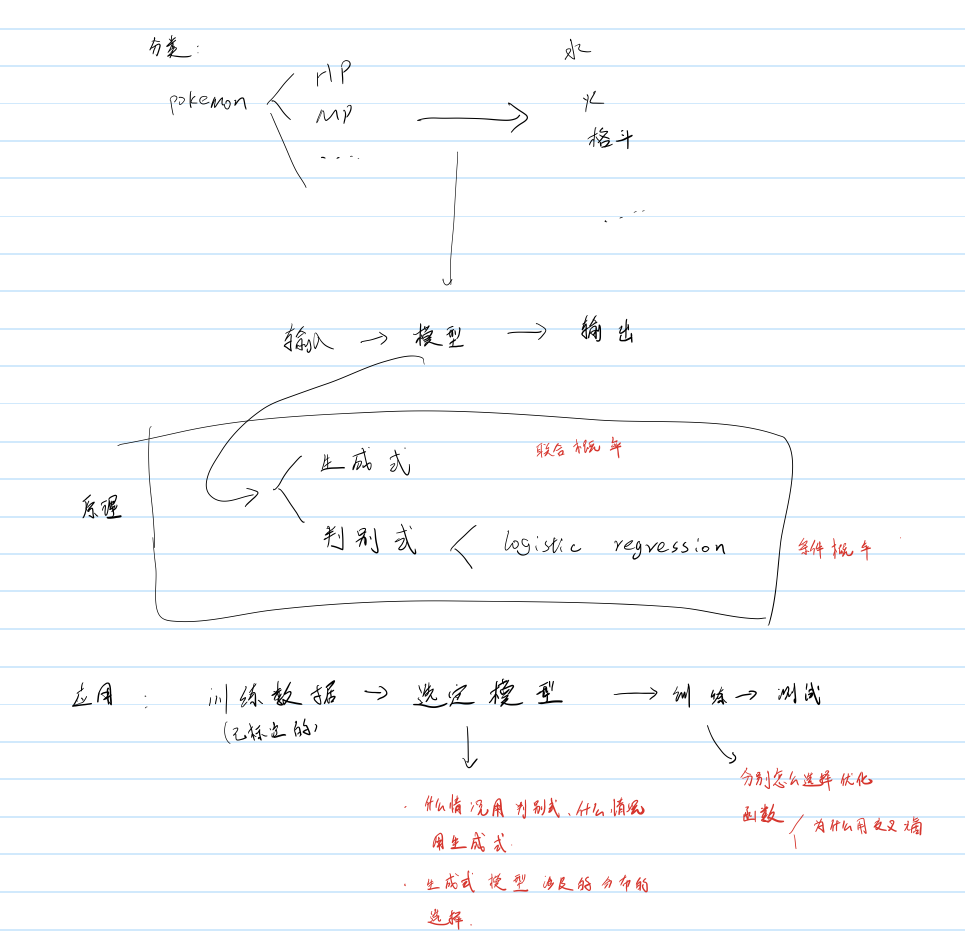 分类:
pokemon
HP
MP
....
水
火
格斗
....
输入 → 模型 → 输出
原理
生成式
联合概率
判别式
logistic regression
条件概率
应用: 训练数据 → 选定模型 → 训练 → 测试
(已标定的)
· 什么情况用判别式、什么情况
用生成式.
· 生成式模型涉及的分布的
选择.
分别怎么选择优化
函数
为什么用交叉熵